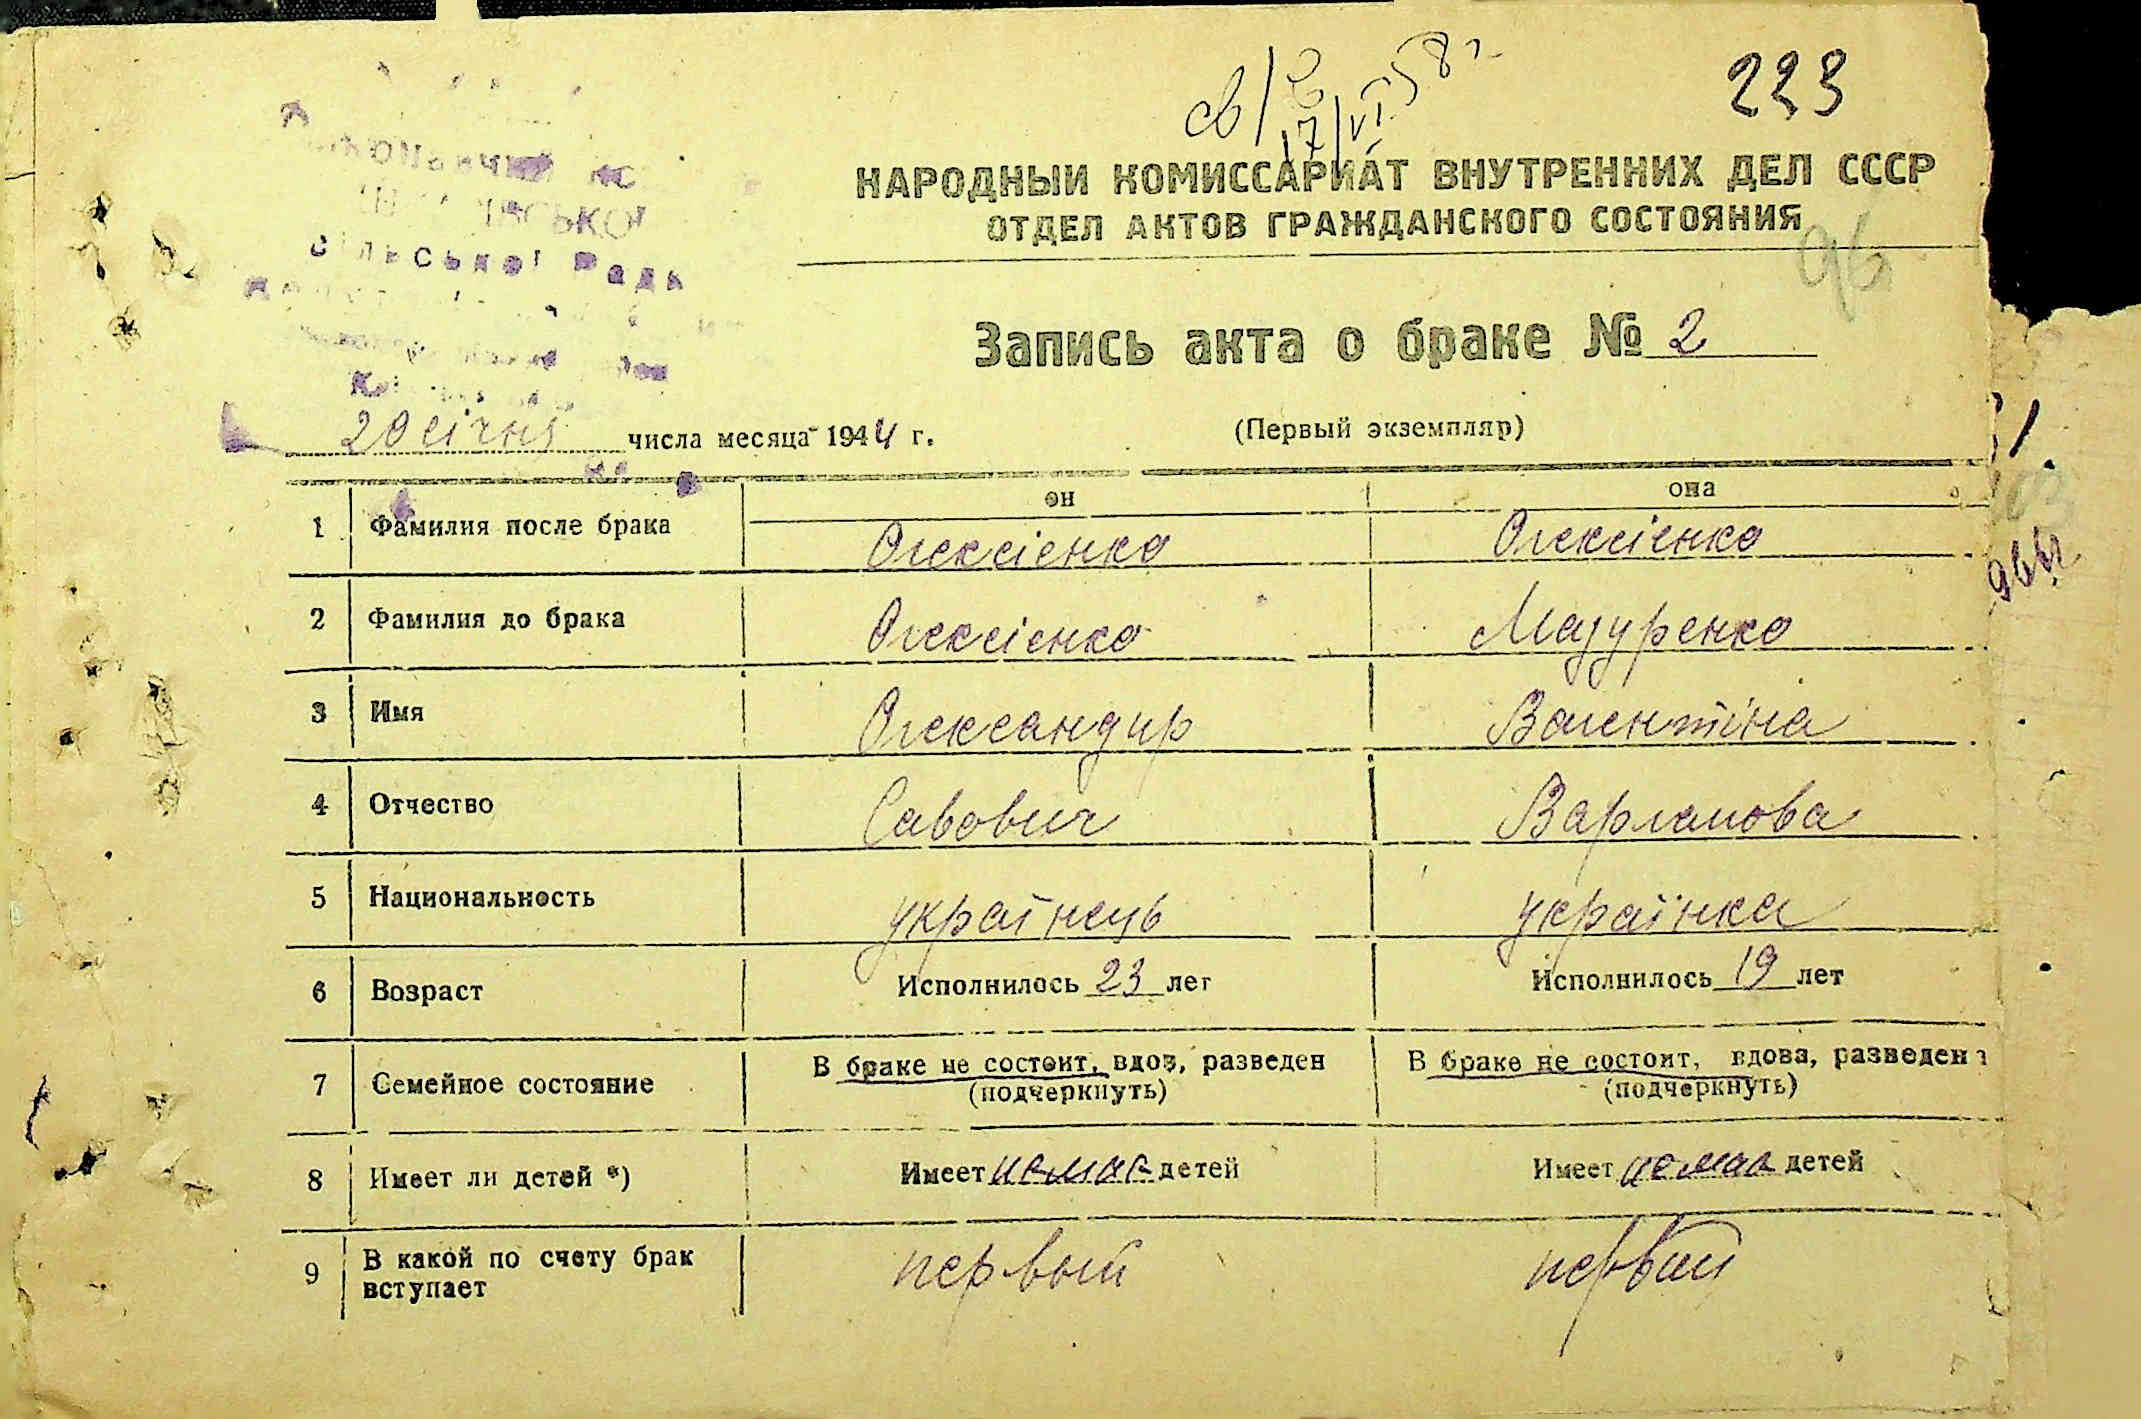 223
17/VI 58 г.
НАРОДНЫЙ КОМИССАРИАТ ВНУТРЕННИХ ДЕЛ СССР
ОТДЕЛ АКТОВ ГРАЖДАНСКОГО СОСТОЯНИЯ
96
сільської Ради
Запись акта о браке № 2
20 січня числа месяца 1944 г.
(Первый экземпляр)
он она
1 Фамилия после брака Олексієнко Олексієнко
2 Фамилия до брака Олексієнко Мазуренко
3 Имя Олександир Валентіна
4 Отчество Савович Варламова
5 Национальность українець українка
6 Возраст Исполнилось 23 лет Исполнилось 19 лет
7 Семейное состояние В браке не состоит, вдов, разведен В браке не состоит, вдова, разведена
(подчеркнуть) (подчеркнуть)
8 Имеет ли детей *) Имеет немає детей Имеет немає детей
9 В какой по счету брак вступает первый первый